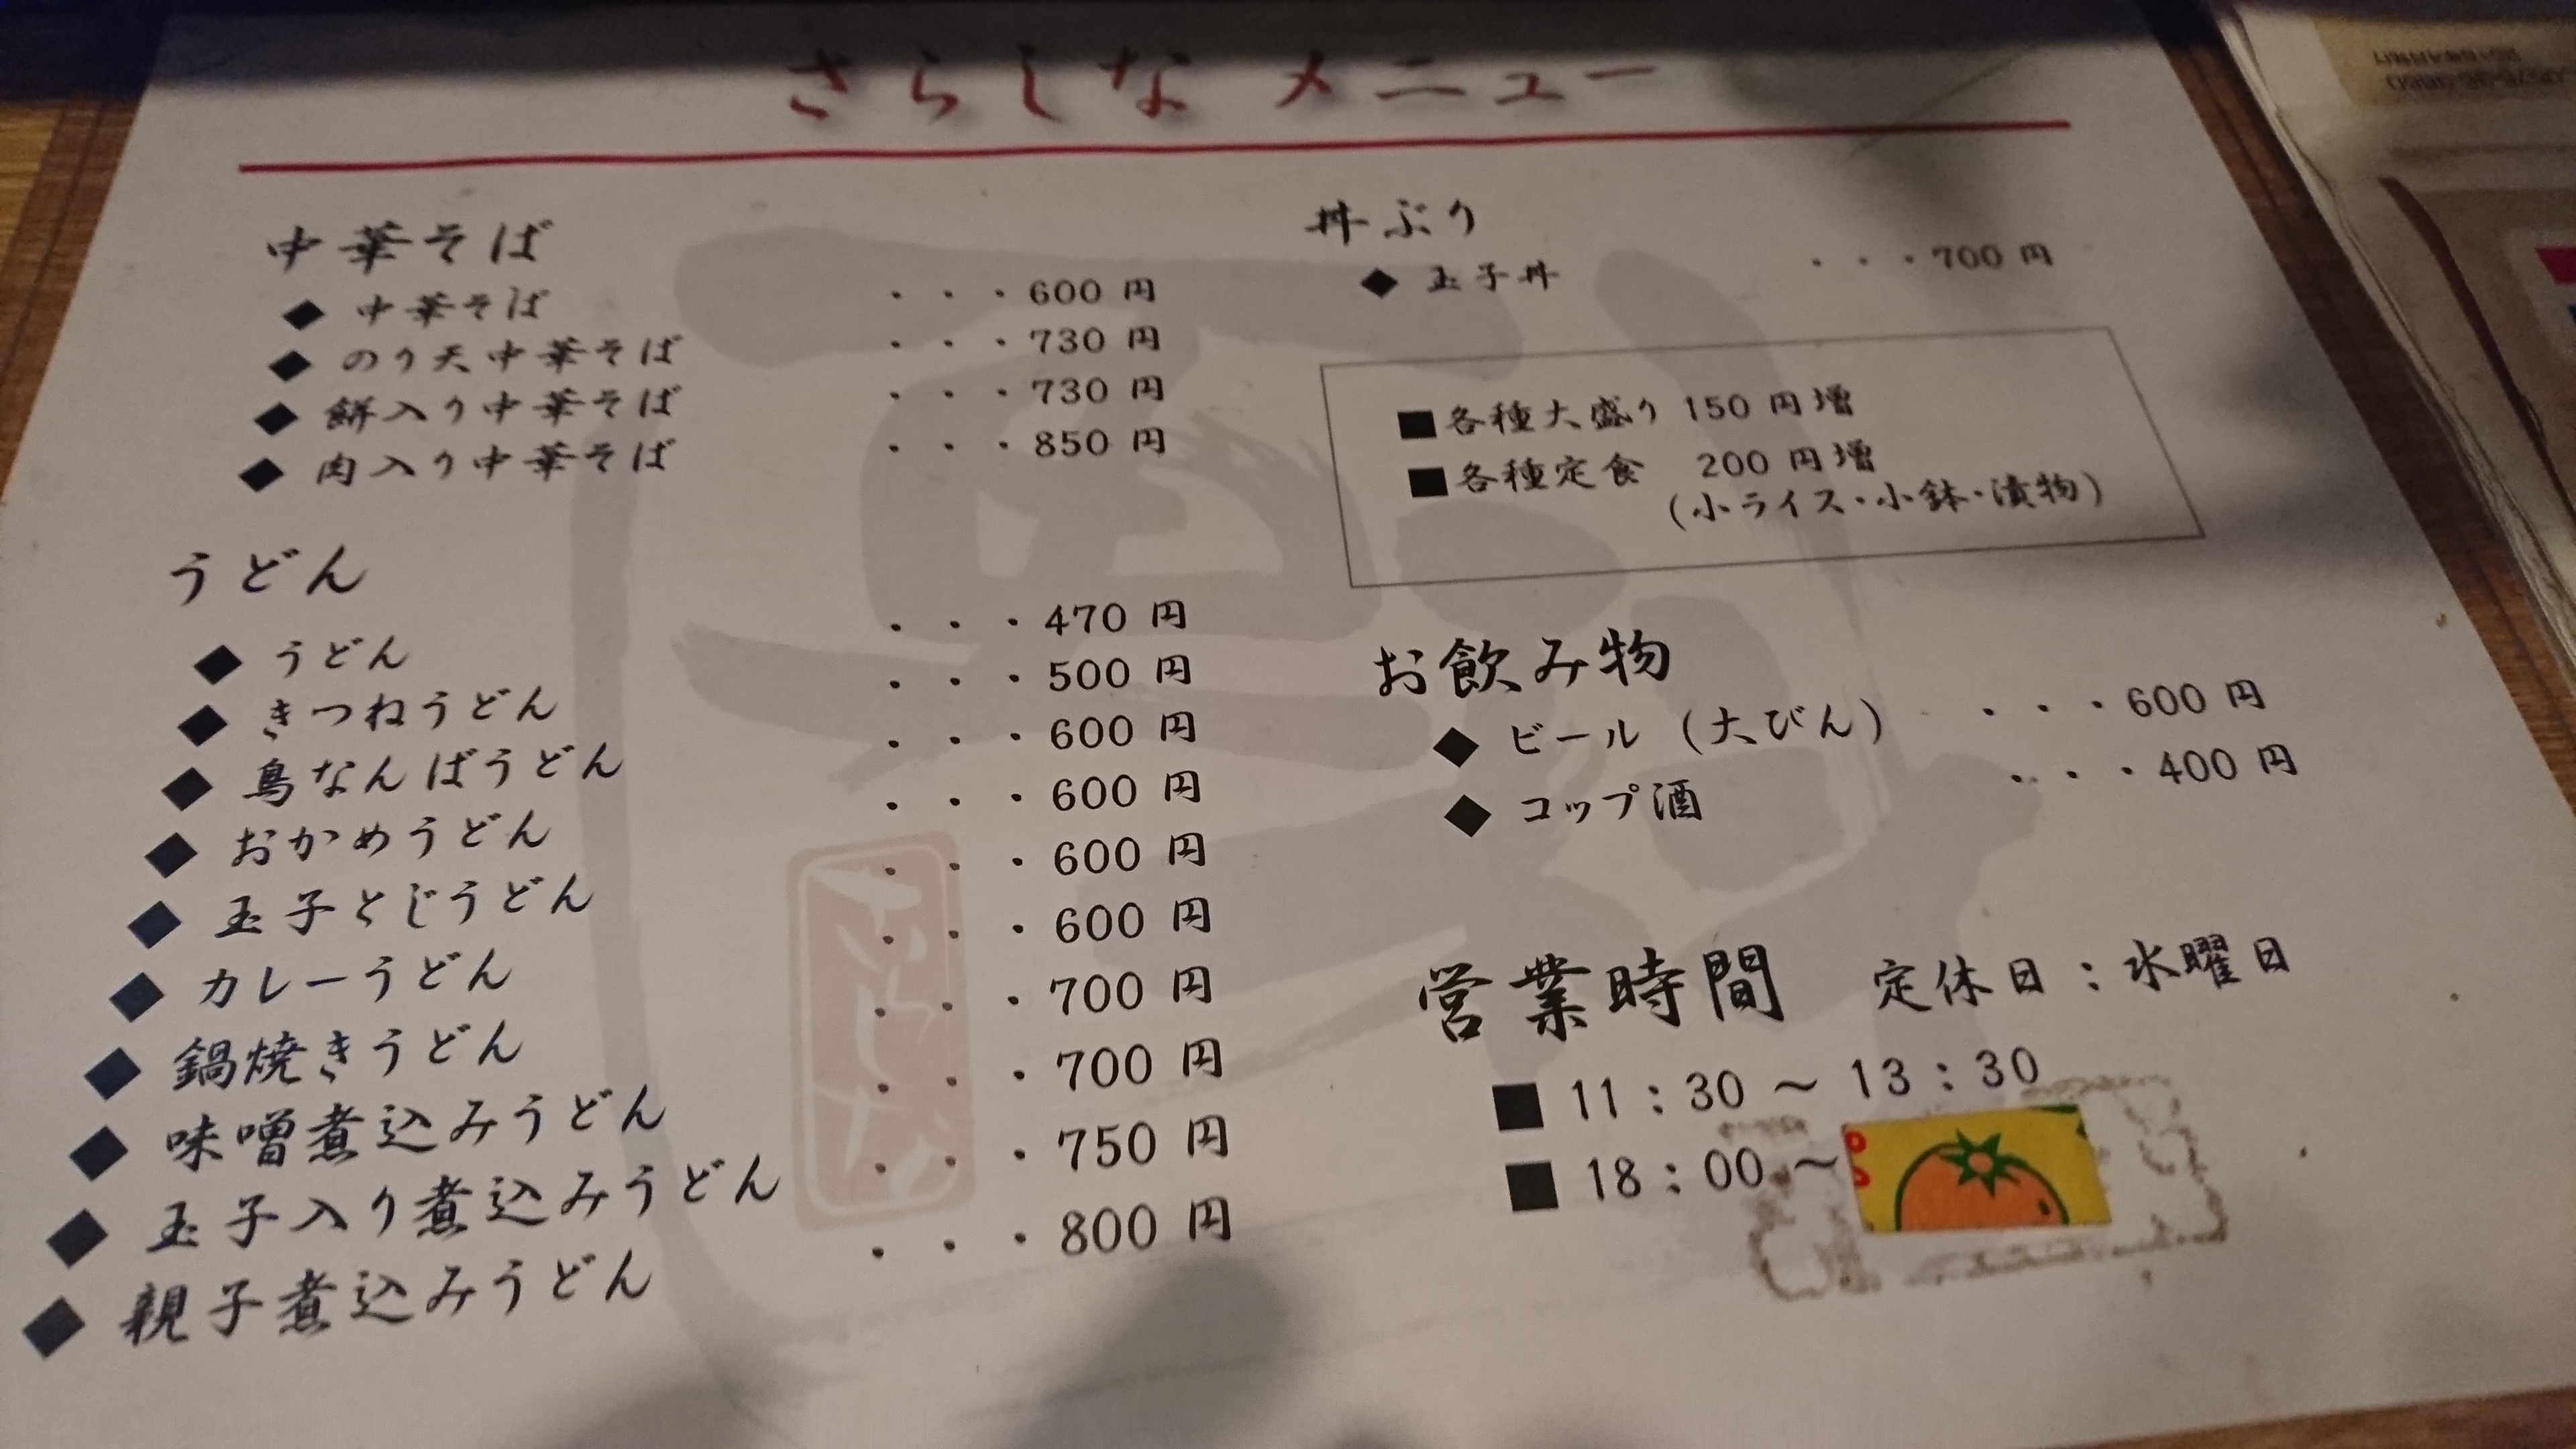 さらしな メニュー
中華そば
◆ 中華そば ・・・600 円
◆ のり天中華そば ・・・730 円
◆ 餅入り中華そば ・・・730 円
◆ 肉入り中華そば ・・・850 円
うどん
◆ うどん ・・・470 円
◆ きつねうどん ・・・500 円
◆ 鳥なんばうどん ・・・600 円
◆ おかめうどん ・・・600 円
◆ 玉子とじうどん ・・・600 円
◆ カレーうどん ・・・600 円
◆ 鍋焼きうどん ・・・700 円
◆ 味噌煮込みうどん ・・・700 円
◆ 玉子入り煮込みうどん ・・・750 円
◆ 親子煮込みうどん ・・・800 円
さらしな
丼ぶり
◆ 玉子丼 ・・・700 円
■各種大盛り 150 円増
■各種定食 200 円増
(小ライス・小鉢・漬物)
お飲み物
◆ ビール (大びん) ・・・600 円
◆ コップ酒 ・・・400 円
営業時間 定休日：水曜日
■ 11：30 ～ 13：30
■ 18：00 ～